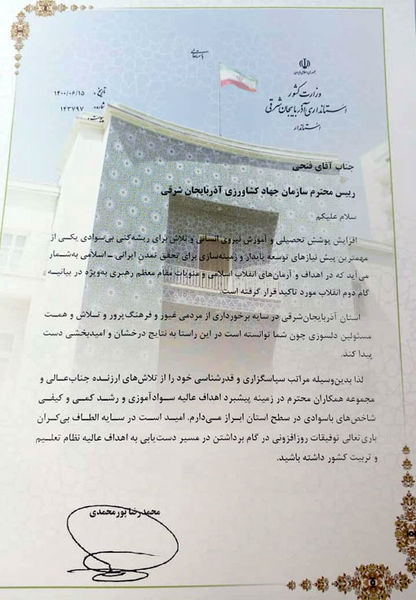 جمهوری اسلامی ایران
وزارت کشور
استانداری آذربایجان شرقی
استاندار
تاریخ: ۱۴۰۰/۰۶/۱۵
شماره: ۱۴۳۷۹۷
پیوست:
جناب آقای فتحی
رییس محترم سازمان جهاد کشاورزی آذربایجان شرقی
سلام علیکم
افزایش پوشش تحصیلی و آموزش نیروی انسانی و تلاش برای ریشه‌کنی بی‌سوادی یکی از
مهمترین پیش نیازهای توسعه پایدار و زمینه‌سازی برای تحقق تمدن ایرانی - اسلامی به‌شمار
می‌آید که در اهداف و آرمان‌های انقلاب اسلامی و منویات مقام معظم رهبری به‌ویژه در بیانیه
گام دوم انقلاب مورد تاکید قرار گرفته است.
استان آذربایجان‌شرقی در سایه برخورداری از مردمی غیور و فرهنگ‌پرور و تلاش و همت
مسئولین دلسوزی چون شما توانسته است در این راستا به نتایج درخشان و امیدبخشی دست
پیدا کند.
لذا بدین‌وسیله مراتب سپاسگزاری و قدرشناسی خود را از تلاش‌های ارزنده جناب‌عالی و
مجموعه همکاران محترم در زمینه پیشبرد اهداف عالیه سوادآموزی و رشد کمی و کیفی
شاخص‌های باسوادی در سطح استان ابراز می‌دارم. امید است در سایه الطاف بی‌کران
باری‌تعالی توفیقات روزافزونی در گام برداشتن در مسیر دست‌یابی به اهداف عالیه نظام تعلیم
و تربیت کشور داشته باشید.
محمدرضا پورمحمدی